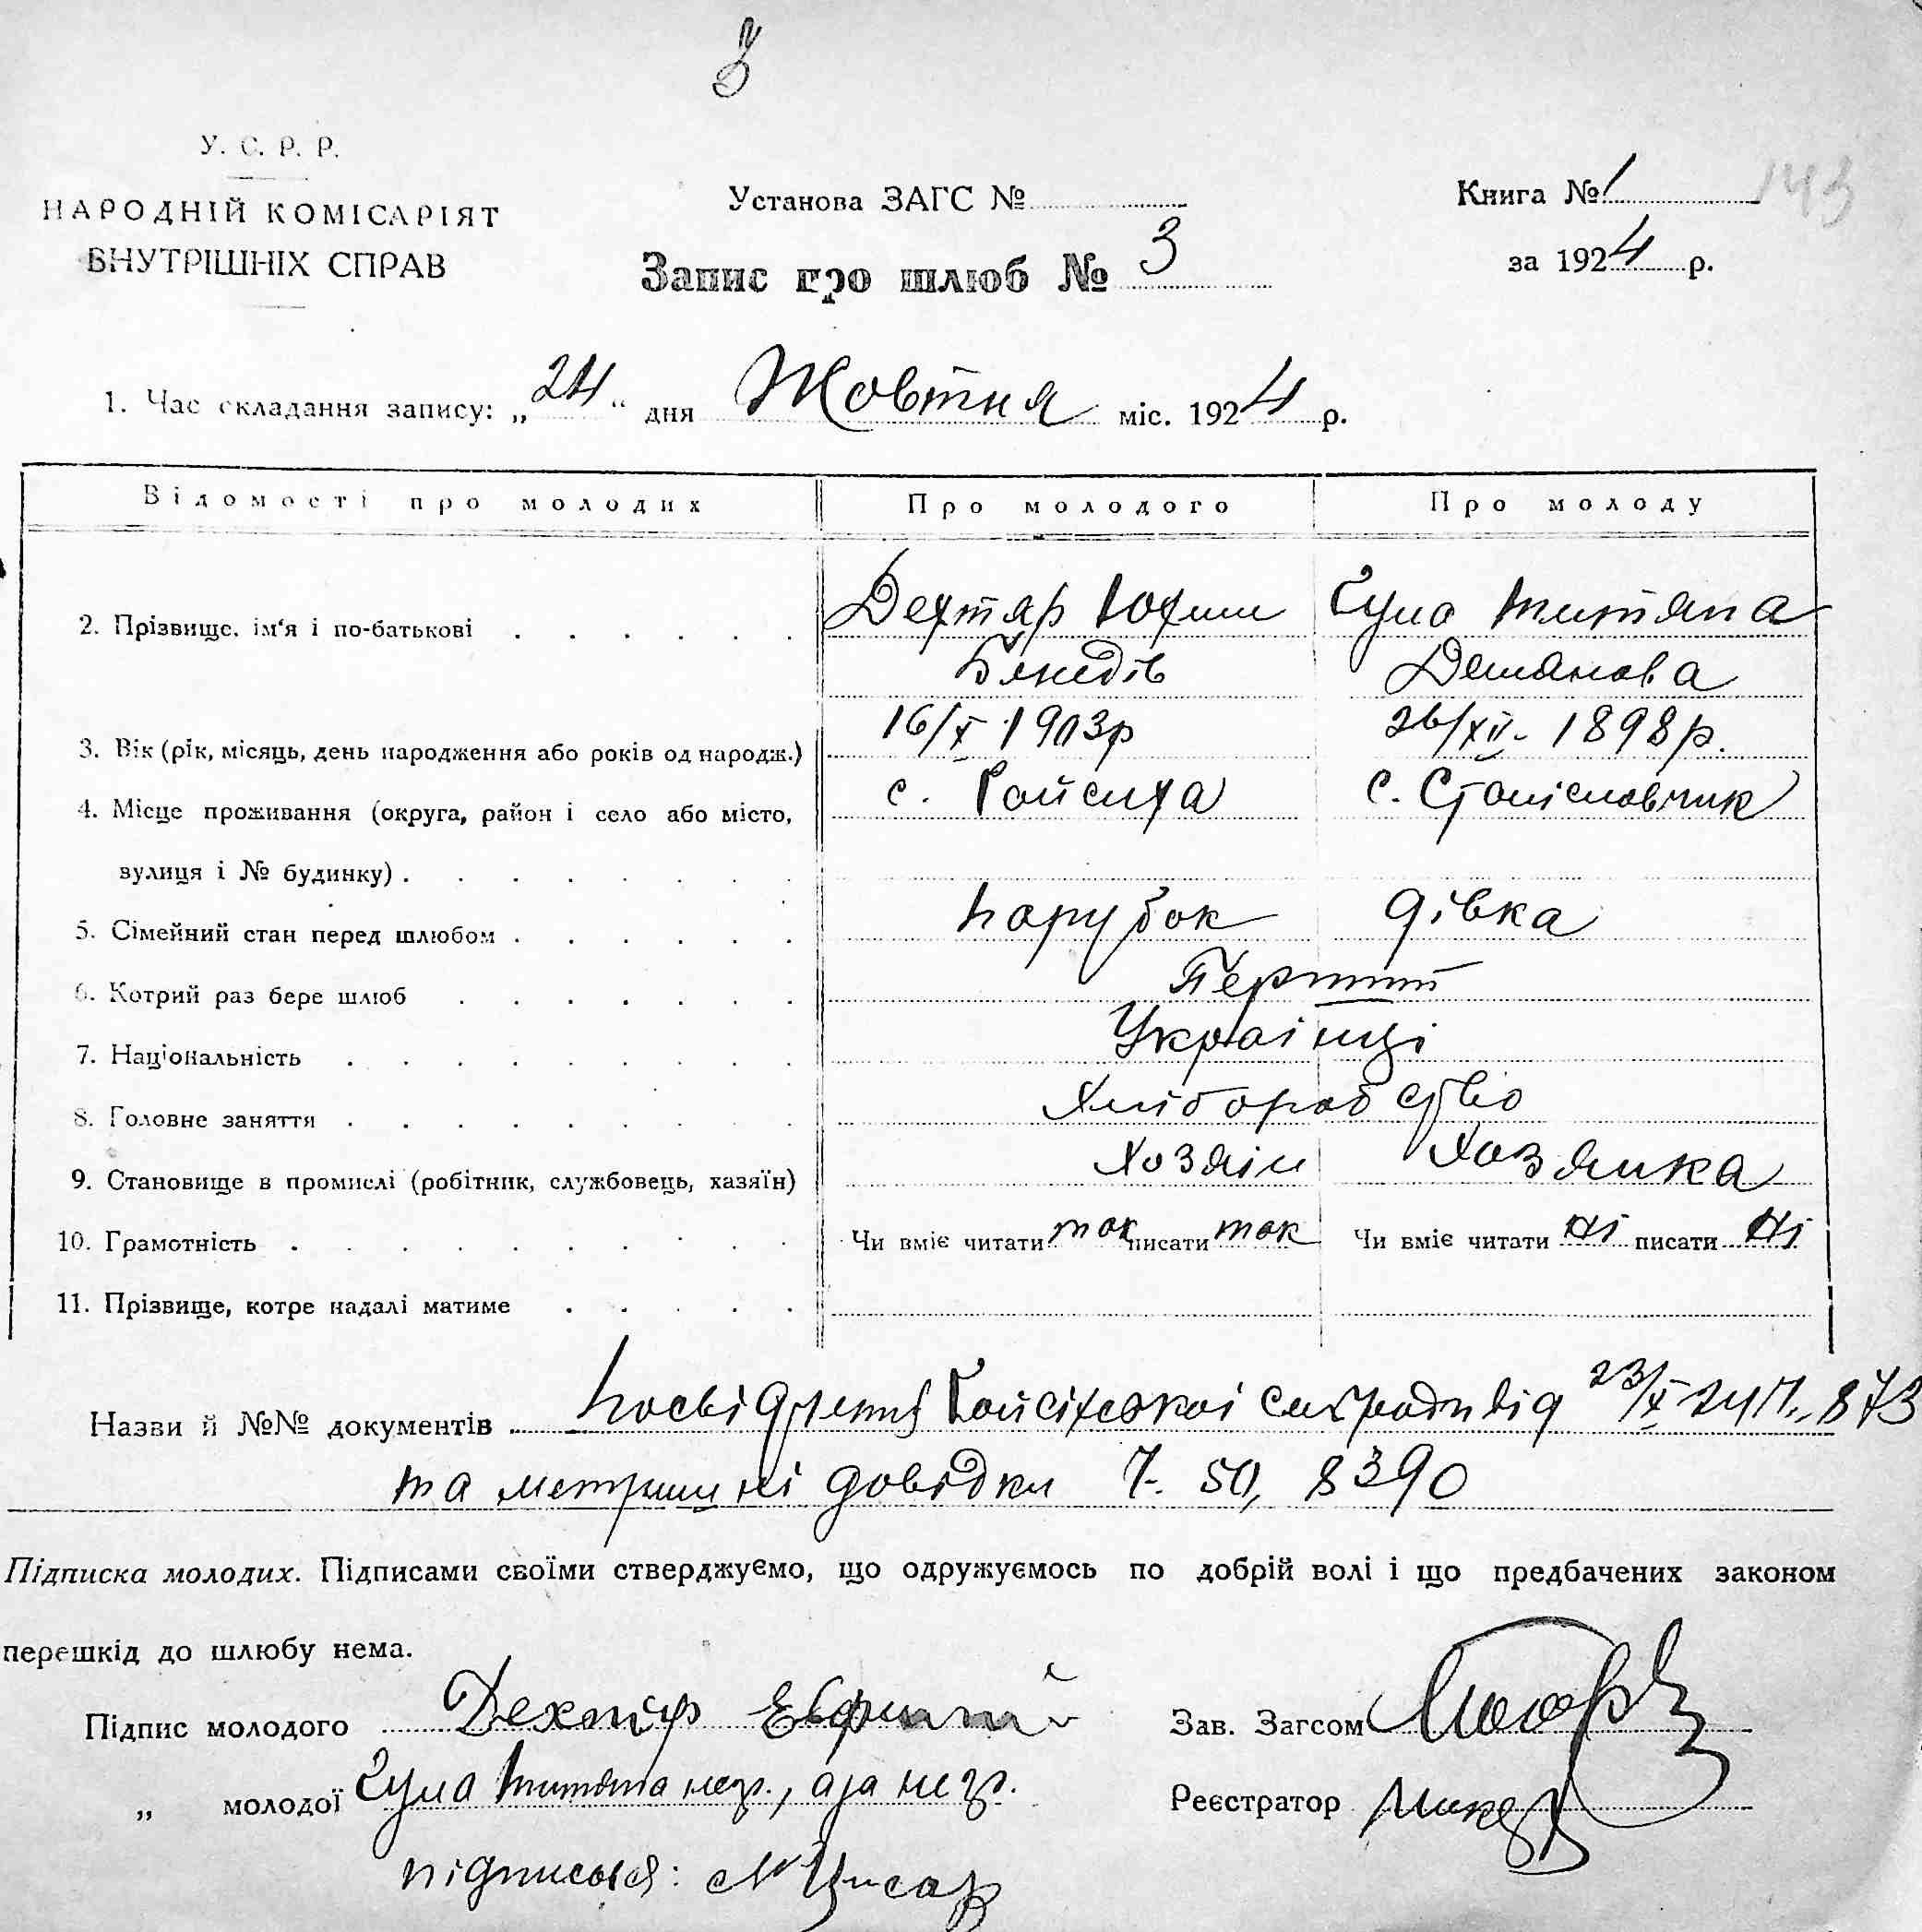 3
У. С. Р. Р.
НАРОДНІЙ КОМІСАРІЯТ
ВНУТРІШНІХ СПРАВ
Установа ЗАГС №
Запис про шлюб № 3
Книга № 1
143
за 1924 р.
1. Час складання запису: „24“ дня Жовтня міс. 1924 р.
Відомості про молодих Про молодого Про молоду
2. Прізвище, ім'я і по-батькові Дехтяр Юхим Гула Титяна
Демянова
3. Вік (рік, місяць, день народження або років од народж.) 16/X 1903р 26/XII. 1898р.
4. Місце проживання (округа, район і село або місто, с. Гойсиха с. Станіславчик
вулиця і № будинку)
5. Сімейний стан перед шлюбом парубок дівка
6. Котрий раз бере шлюб Перший
7. Національність Украінці
8. Головне заняття Хліборобство
9. Становище в промислі (робітник, службовець, хазяїн) Хозяін Хозяйка
10. Грамотність Чи вміє читати так писати так Чи вміє читати ні писати ні
11. Прізвище, котре надалі матиме
Назви й №№ документів Гойсіхскоі від 23/X 873
та метричні довідки 50, 8390
Підписка молодих. Підписами своїми стверджуємо, що одружуємось по добрій волі і що предбачених законом
перешкід до шлюбу нема.
Підпис молодого Дехтяр Евфимий Зав. Загсом
„ молодої Гула Титяна негр., а за негр. Реєстратор
підписався: